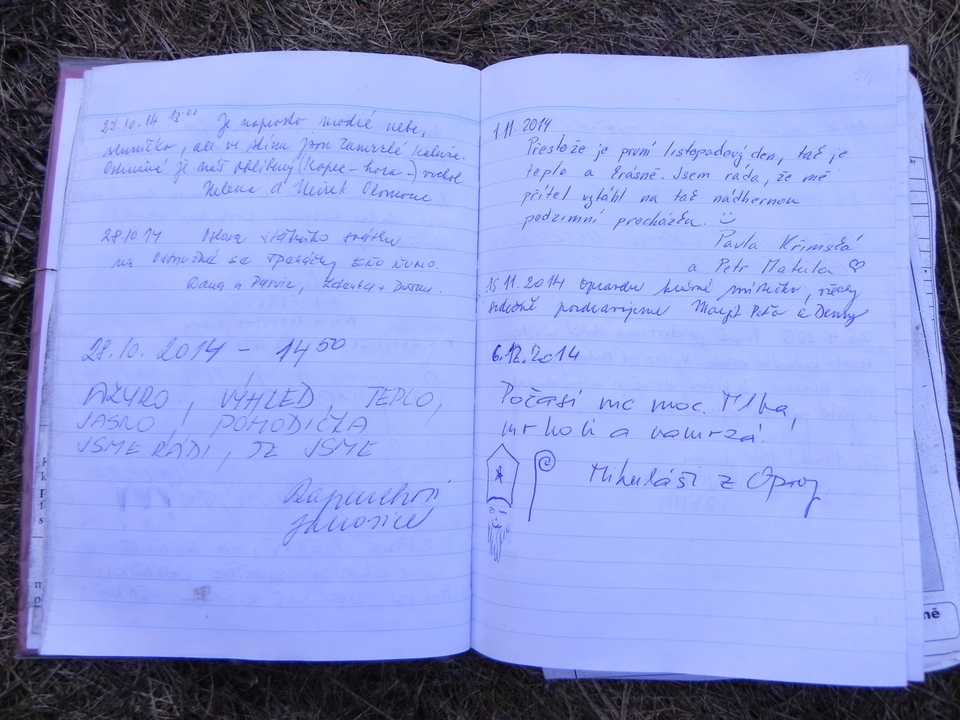 27.10.14 12:00 Je naprosto modré nebe,
sluníčko, ale ve stínu jsou zamrzlé kaluže.
je náš oblíbený (kopec - hora -) vrchol
Helena a Olomouc
28.10.14 státního svátku
na se
Dana a Zdenka + Dušan.
28.10.2014 - 14 50
AZURO, VÝHLED, TEPLO,
JASNO, POHODIČKA
JSME RÁDI, ŽE JSME
Rapouchovi
Janovice
1.11.2014
Přestože je první listopadový den, tak je
teplo a krásně. Jsem ráda, že mě
přítel vytáhl na tak nádhernou
podzimní procházku.
Pavla Křimská
a Petr Matula
15.11.2014 opravdu krásné místečko, všechny
srdečně pozdravujeme Peťa a Denny
6.12.2014
Počasí nic moc. Mlha,
mrholí a namrzá!
Mikuláši z Opavy
ně